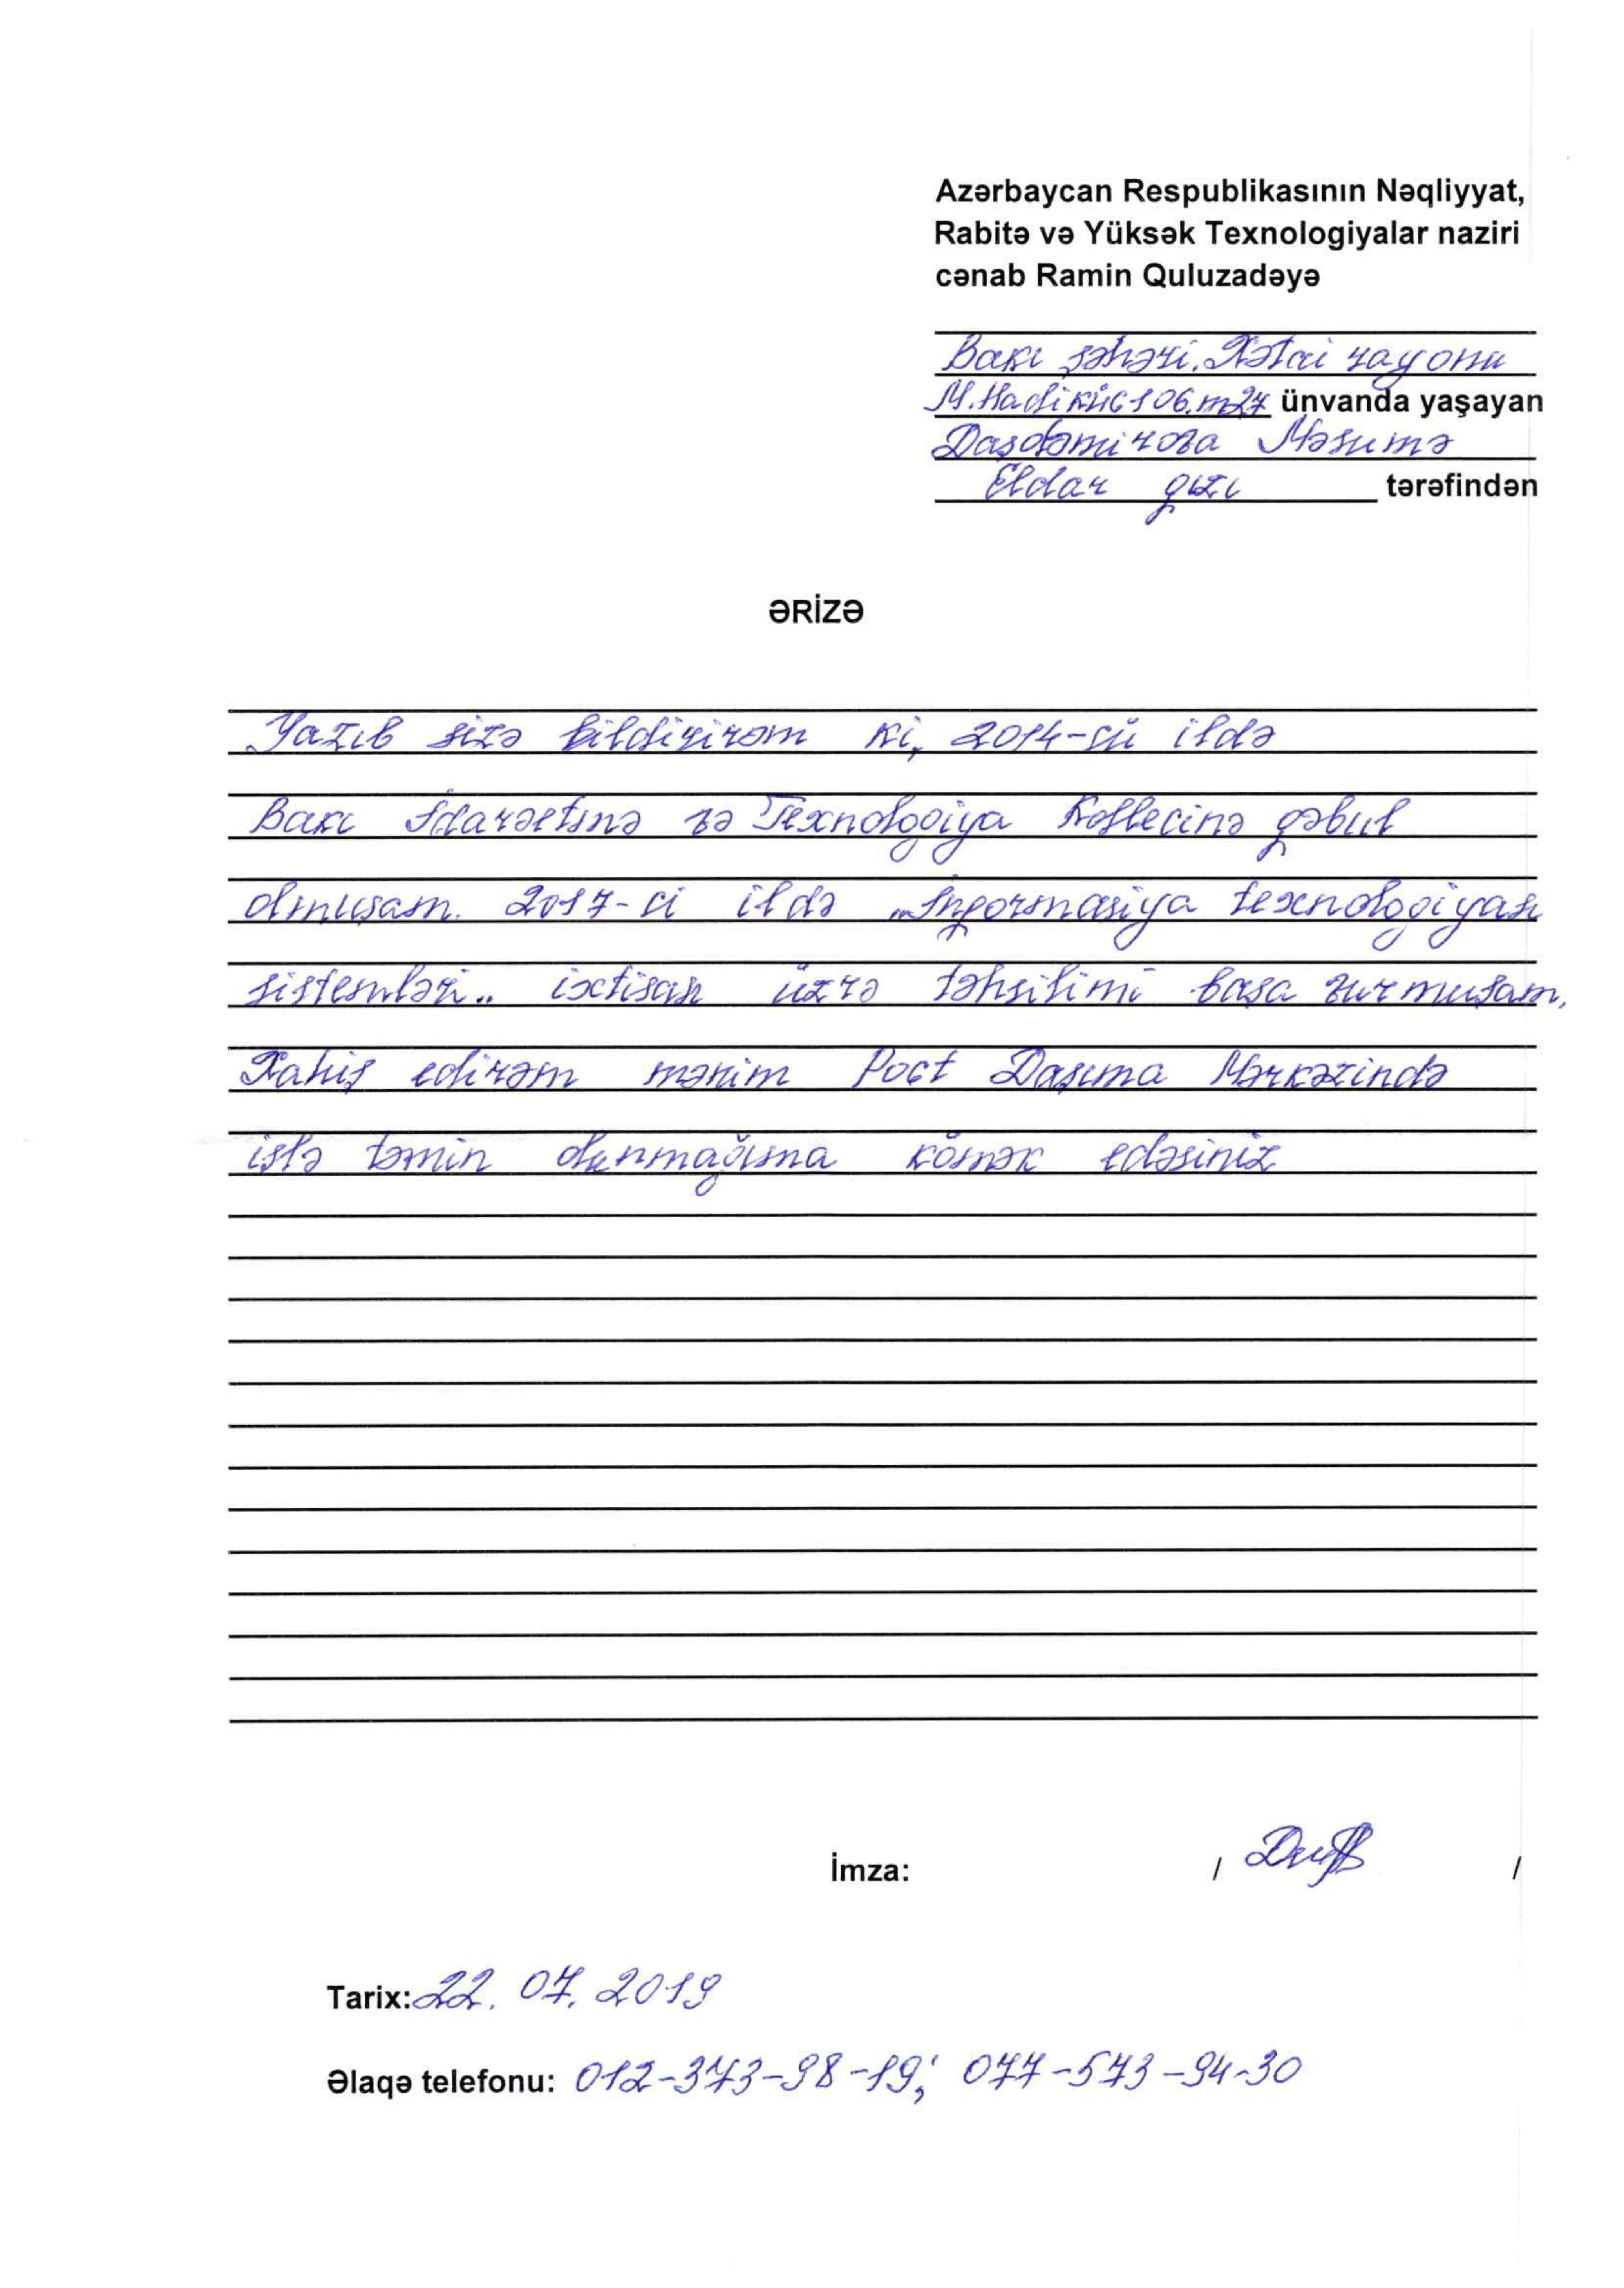 Azərbaycan Respublikasının Nəqliyyat,
Rabitə və Yüksək Texnologiyalar naziri
cənab Ramin Quluzadəyə
Bakı şəhəri. Xətai rayonu
M.Hadi küç 106.m27 ünvanda yaşayan
Daşdəmirova Məsumə
Eldar qızı tərəfindən
ƏRİZƏ
Yazıb sizə bildirirəm ki, 2014-cü ildə
Bakı İdarəetmə və Texnologiya Kollecinə qəbul
olmuşam. 2017-ci ildə „İnformasiya texnologiyası
sistemləri„ ixtisası üzrə təhsilimi başa vurmuşam.
Xahiş edirəm mənim Poçt Daşıma Mərkəzində
işlə təmin olunmağıma kömək edəsiniz
İmza: / /
Tarix: 22. 07. 2019
Əlaqə telefonu: 012-373-98-19; 077-573-94-30